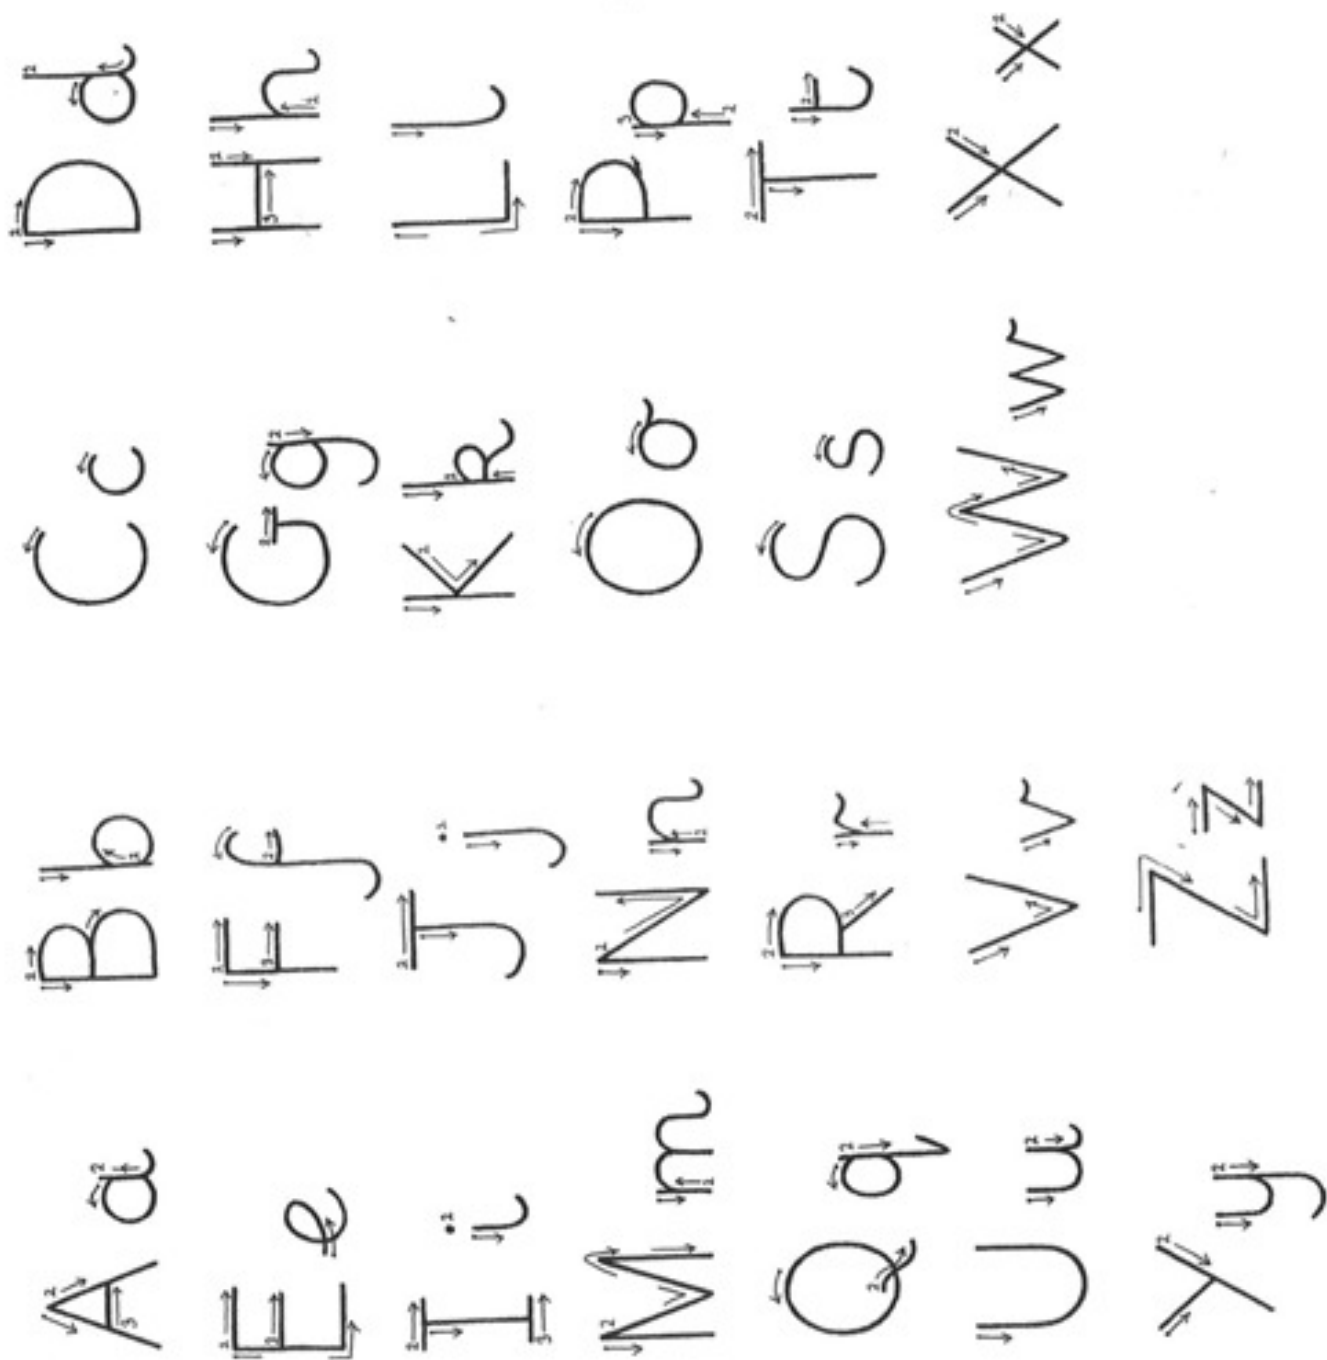 A a B b C c D d
E e F f G g H h
I i J j K k L l
M m N n O o P p
Q q R r S s T t
U u V v W w X x
Y y Z z